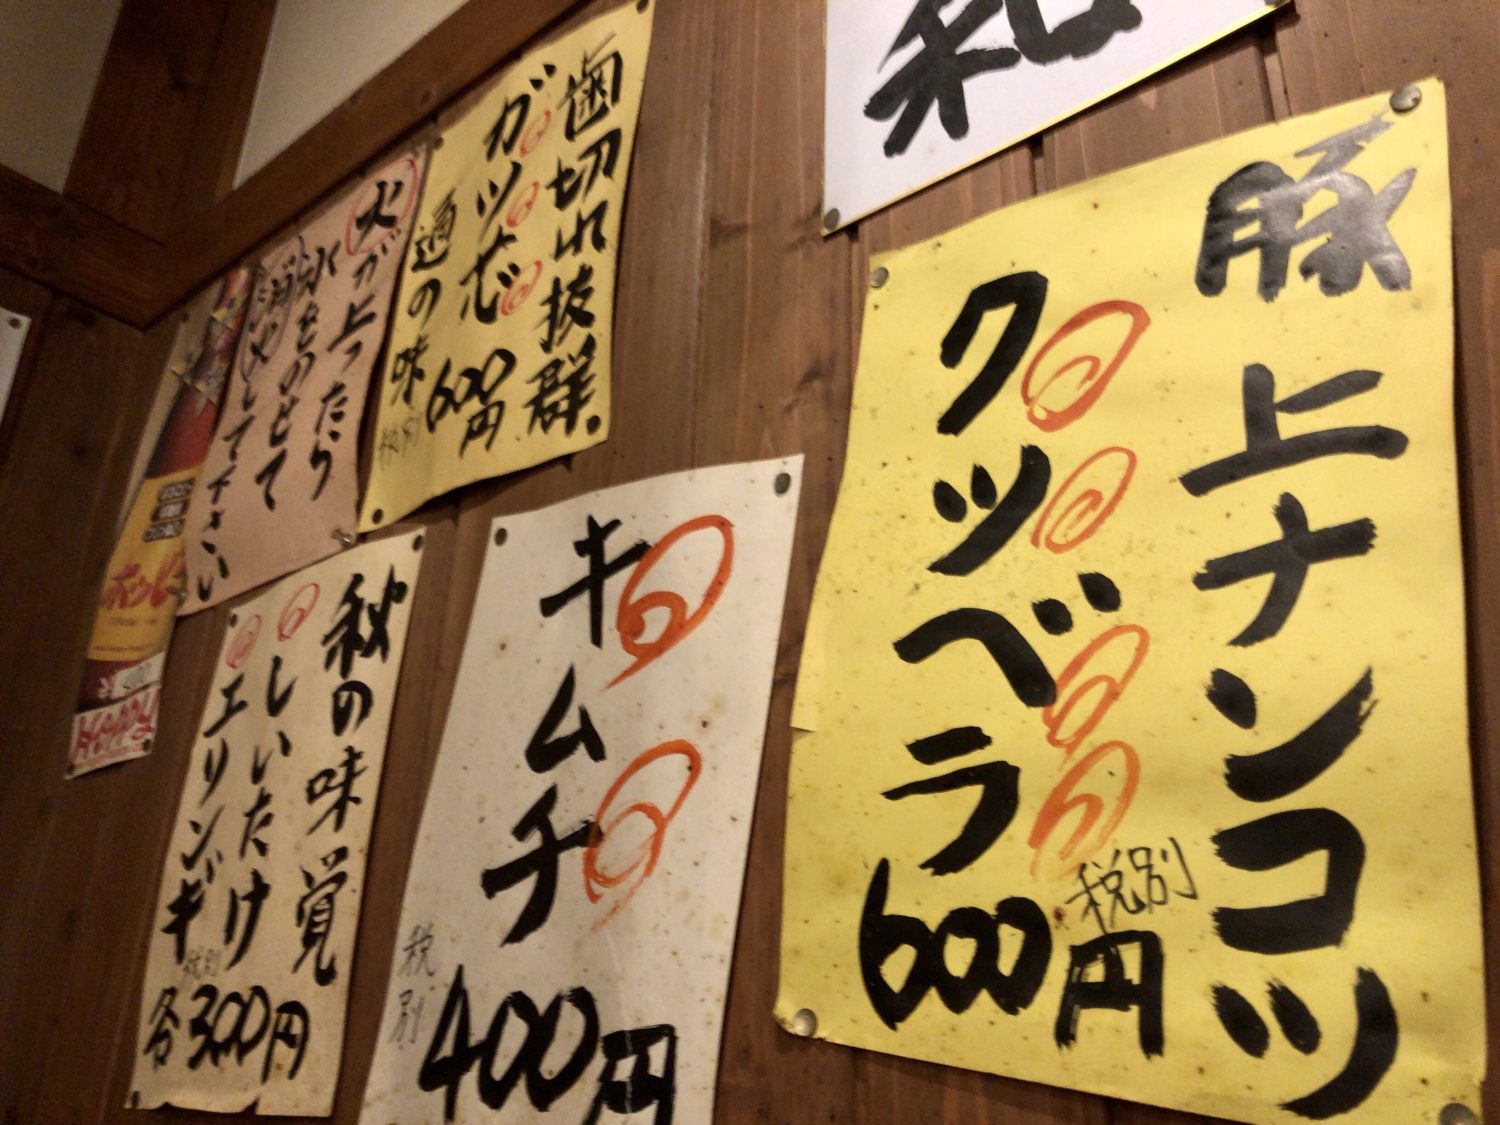 豚上ナンコツ
クッベラ
税別
600円
歯切れ抜群。
ガツポ
通の味
600円
税別
火が上ったり
氷をのせて
消火して下さい
キムチ
税別
400円
秋の味覚
しいたけ
エリンギ
税別
各300円
HOPPY